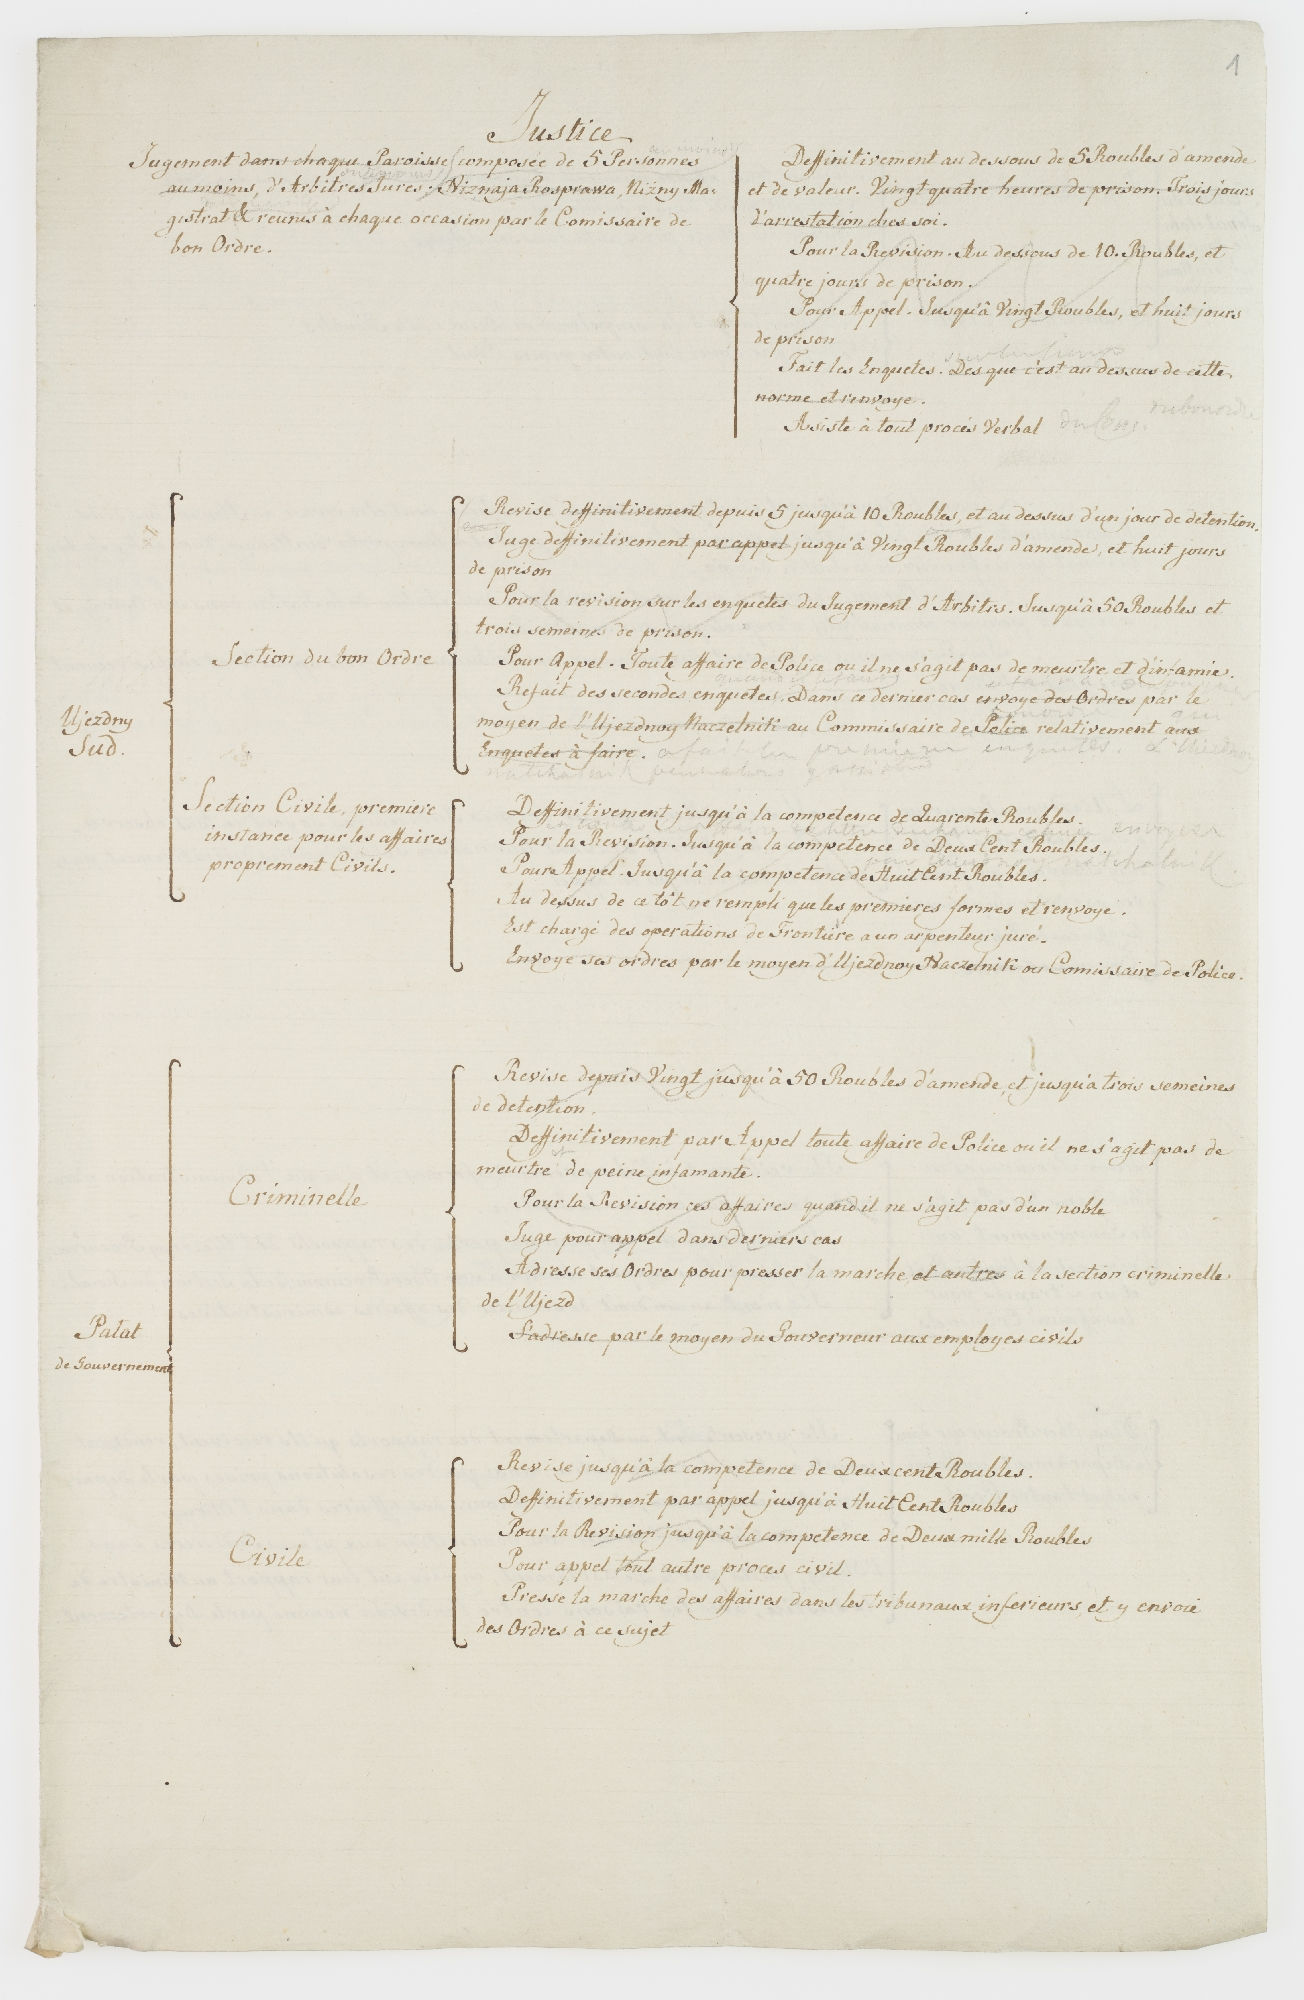 1
Justice
Jugement dans chaque Paroisse composée de 5 Personnes
au moins
au moins, d'Arbitres Jures, Niznaja Rosprawa, Nizny Ma-
gistrat & reunis à chaque occasion par le Comissaire de
bon Ordre.
Deffinitivement au dessous de 5 Roubles d'amende
et de valeur. Vingt quatre heures de prison. Trois jours
d'arrestation ches soi.
Pour la Revision. Au dessous de 10. Roubles, et
quatre jours de prison.
Pour Appel. Jusqu'à Vingt Roubles, et huit jours
de prison
Fait les Enquetes. Des que c'est au dessus de cette
norme et renvoye.
Asiste à tout procés Verbal du Com. du bon ordre
Ujezdny
Sud.
Section du bon Ordre
Revise deffinitivement depuis 5 jusqu'à 10 Roubles, et au dessus d'un jour de detention.
Juge deffinitivement par appel jusqu'à Vingt Roubles d'amende, et huit jours
de prison
Pour la revision sur les enquetes du Jugement d'Arbitrs. Jusqu'à 50 Roubles et
trois semeines de prison.
Pour Appel. Toute affaire de Police ou il ne s'agit pas de meurtre et d'infamie.
Refait des secondes enquetes. Dans ce dernier cas envoye des Ordres par le
moyen de l'Ujezdnoy Naczelnik au Commissaire de Police relativement aux
Enquetes à faire. a fait les premieres enquetes. L'Uiezdnoy
natchalnik
Section Civile, premiere
instance pour les affaires
proprement Civils.
Deffinitivement jusqu'à la competence de Quarente Roubles.
envoyer
Pour la Revision. Jusqu'à la competence de Deux Cent Roubles.
natchalnik
Pour Appel. Jusqu'à la competence de Huit Cent Roubles.
Au dessus de ce tôt ne rempli que les premieres formes et renvoye.
Est chargé des operations de Frontiere a un arpenteur juré.
Envoye ses ordres par le moyen d'Ujezdnoy Naczelnik ou Comissaire de Police.
Palat
de Gouvernement
Criminelle
Revise depuis Vingt jusqu'à 50 Roubles d'amende, et jusqu'a trois semeines
de detention.
Deffinitivement par Appel toute affaire de Police ou il ne s'agit pas de
meurtre de peine infamante.
Pour la Revision ces affaires quand il ne s'agit pas d'un noble
Juge pour appel dans derniers cas
Adresse ses Ordres pour presser la marche, et autres à la section criminelle
de l'Ujezd
S'adresse par le moyen du Gouverneur aux employes civils
Civile
Revise jusqu'à la competence de Deux cent Roubles.
Deffinitivement par appel jusqu'à Huit Cent Roubles
Pour la Revision jusqu'à la competence de Deux mille Roubles
Pour appel tout autre proces civil.
Presse la marche des affaires dans les tribunaux inferieurs, et y envoie
des Ordres à ce sujet